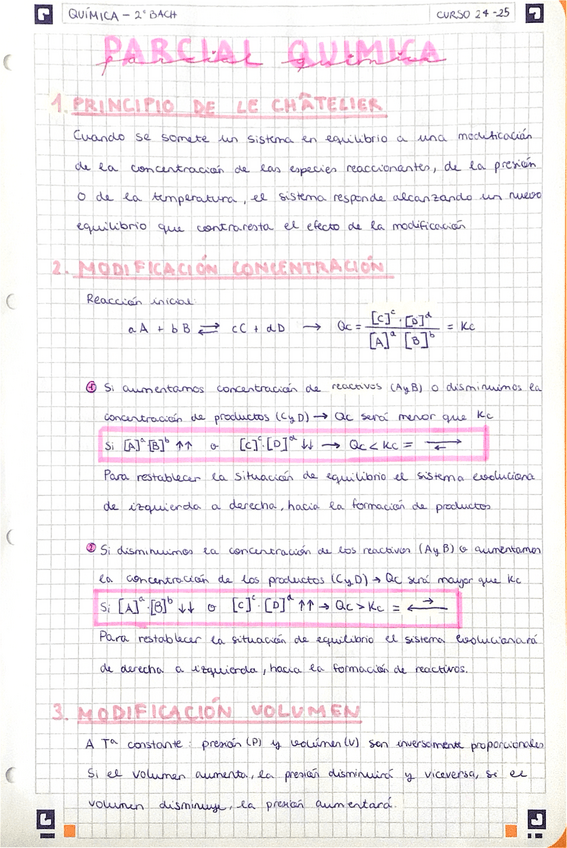 QUÍMICA - 2º BACH
CURSO 24-25
PARCIAL QUIMICA
parcial química
1. PRINCIPIO DE LE CHÂTELIER
Cuando se somete un sistema en equilibrio a una modificación
de la concentración de las especies reaccionantes, de la presión
o de la temperatura, el sistema responde alcanzando un nuevo
equilibrio que contraresta el efecto de la modificación
2. MODIFICACIÓN CONCENTRACIÓN
Reacción inicial
aA + bB ⇄ cC + dD → Qc = [C]^c · [D]^d / [A]^a [B]^b = Kc
① Si aumentamos concentración de reactivos (A y B) o disminuimos la
concentración de productos (C y D) → Qc será menor que Kc
Si [A]^a [B]^b ↑↑ o [C]^c · [D]^d ↓↓ → Qc < Kc = ⇄
Para restablecer la situación de equilibrio el sistema evoluciona
de izquierda a derecha, hacia la formación de productos
② Si disminuimos la concentración de los reactivos (A y B) o aumentamos
la concentración de los productos (C y D) → Qc será mayor que Kc
Si [A]^a · [B]^b ↓↓ o [C]^c · [D]^d ↑↑ → Qc > Kc = ⇄
Para restablecer la situación de equilibrio el sistema evolucionará
de derecha a izquierda, hacia la formación de reactivos.
3. MODIFICACIÓN VOLUMEN
A Tª constante: presión (P) y volúmen (V) son inversamente proporcionales
Si el volumen aumenta, la presión disminuirá y viceversa, si el
volumen disminuye, la presión aumentará.